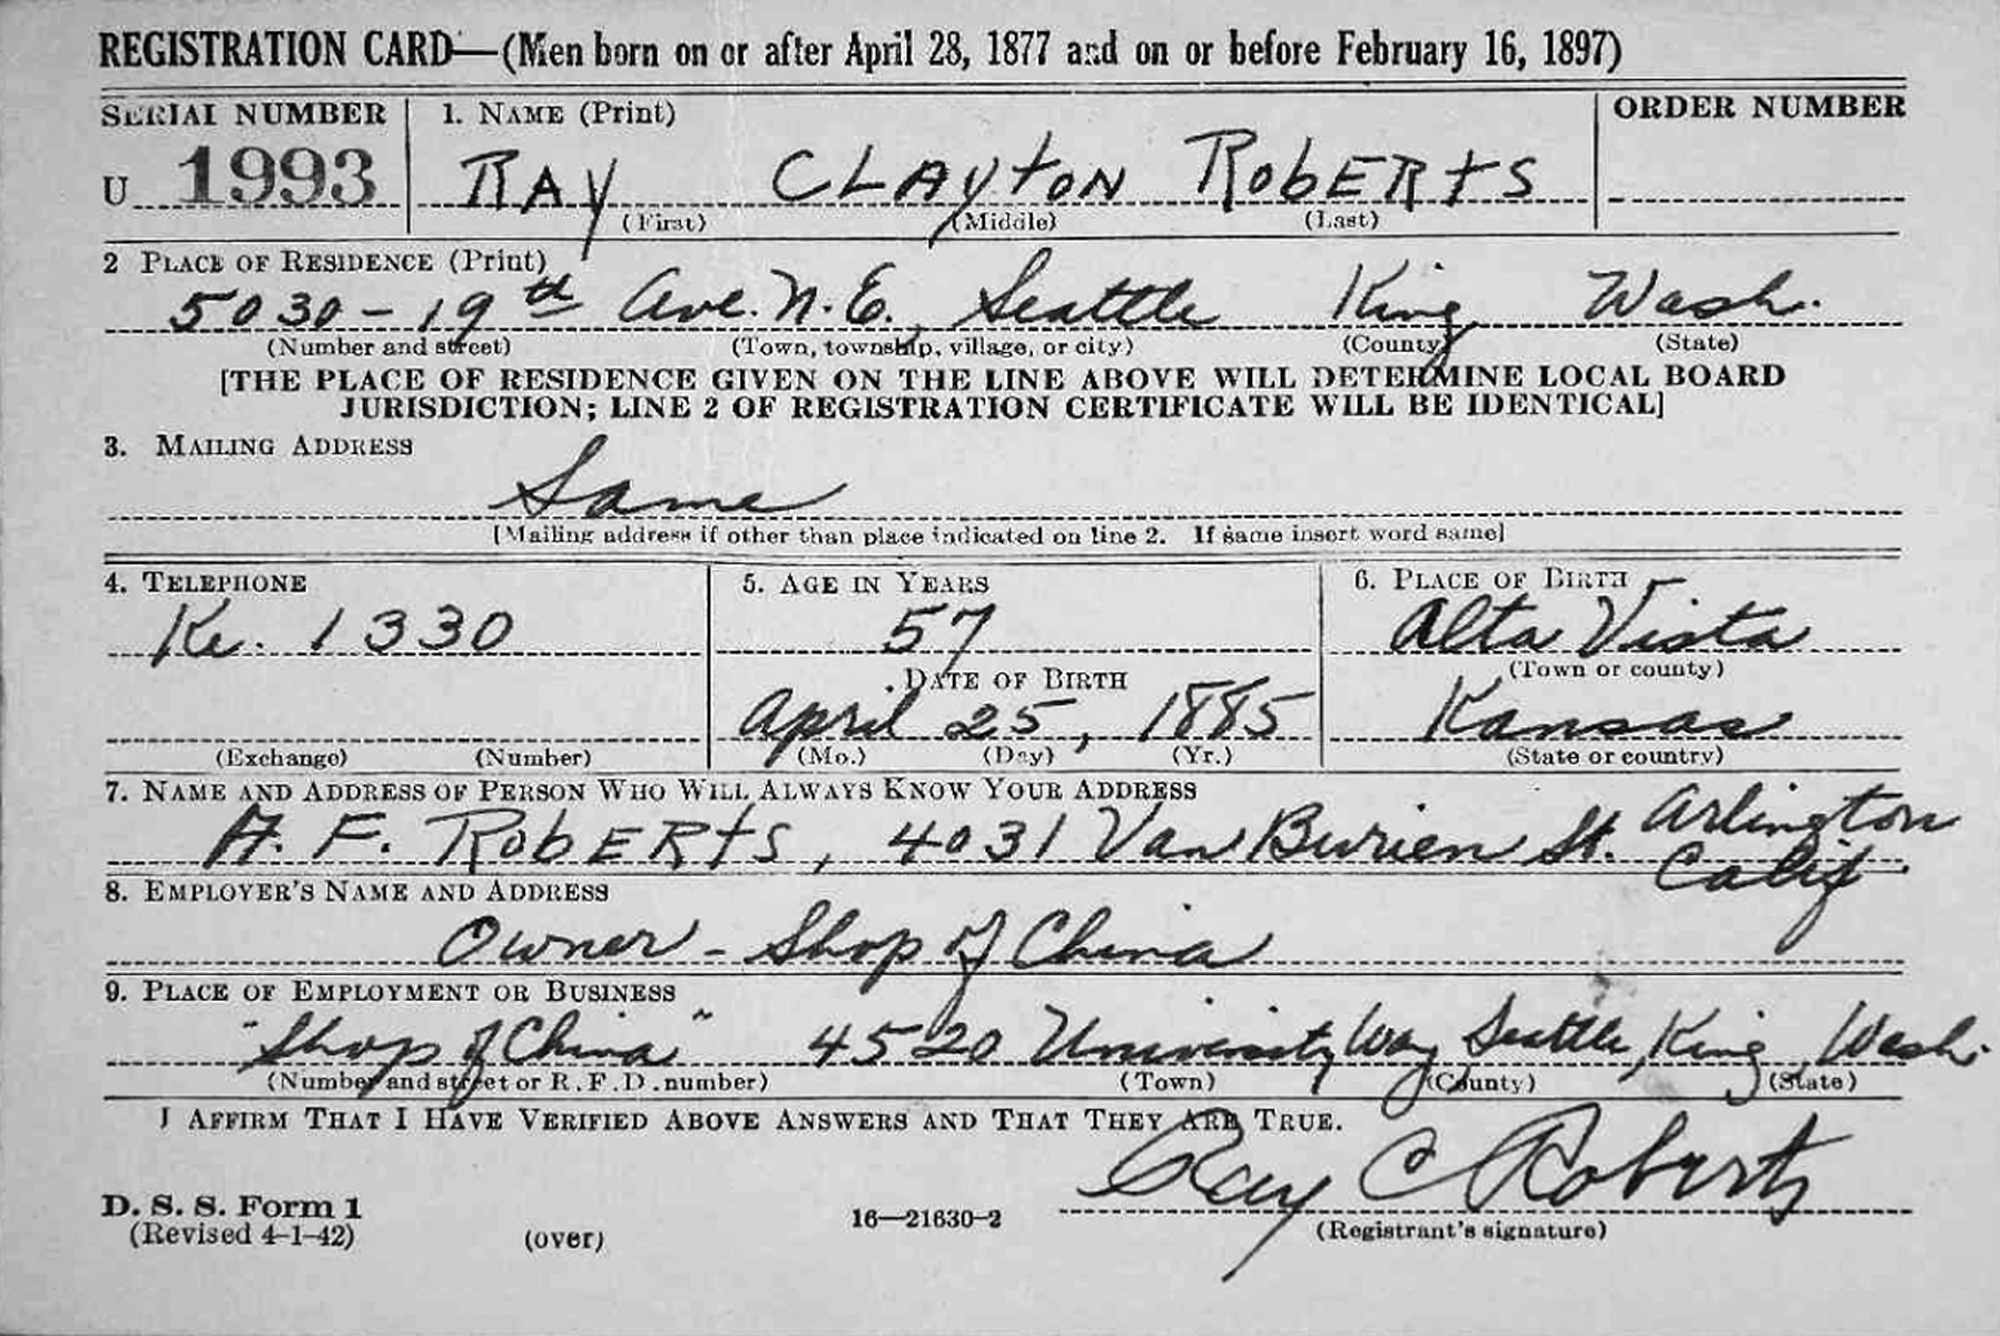 REGISTRATION CARD—(Men born on or after April 28, 1877 and on or before February 16, 1897)
SERIAL NUMBER 1. NAME (Print) ORDER NUMBER
U 1993 RAY CLAYTON ROBERTS
(First) (Middle) (Last)
2 PLACE OF RESIDENCE (Print)
5030-19th Ave. N.E., Seattle King Wash.
(Number and street) (Town, township, village, or city) (County) (State)
[THE PLACE OF RESIDENCE GIVEN ON THE LINE ABOVE WILL DETERMINE LOCAL BOARD
JURISDICTION; LINE 2 OF REGISTRATION CERTIFICATE WILL BE IDENTICAL]
3. MAILING ADDRESS
Same
[Mailing address if other than place indicated on line 2. If same insert word same]
4. TELEPHONE 5. AGE IN YEARS 6. PLACE OF BIRTH
Ke. 1330 57 Alta Vista
DATE OF BIRTH (Town or county)
April 25, 1885 Kansas
(Exchange) (Number) (Mo.) (Day) (Yr.) (State or country)
7. NAME AND ADDRESS OF PERSON WHO WILL ALWAYS KNOW YOUR ADDRESS
A. F. ROBERTS, 4031 Van Burien St. Arlington
Calif.
8. EMPLOYER'S NAME AND ADDRESS
Owner - Shop of China
9. PLACE OF EMPLOYMENT OR BUSINESS
"Shop of China" 4520 University Way Seattle, King, Wash.
(Number and street or R.F.D. number) (Town) (County) (State)
I AFFIRM THAT I HAVE VERIFIED ABOVE ANSWERS AND THAT THEY ARE TRUE.
Ray C Roberts
D. S. S. Form 1
(Revised 4-1-42) (over) 16—21630-2 (Registrant's signature)